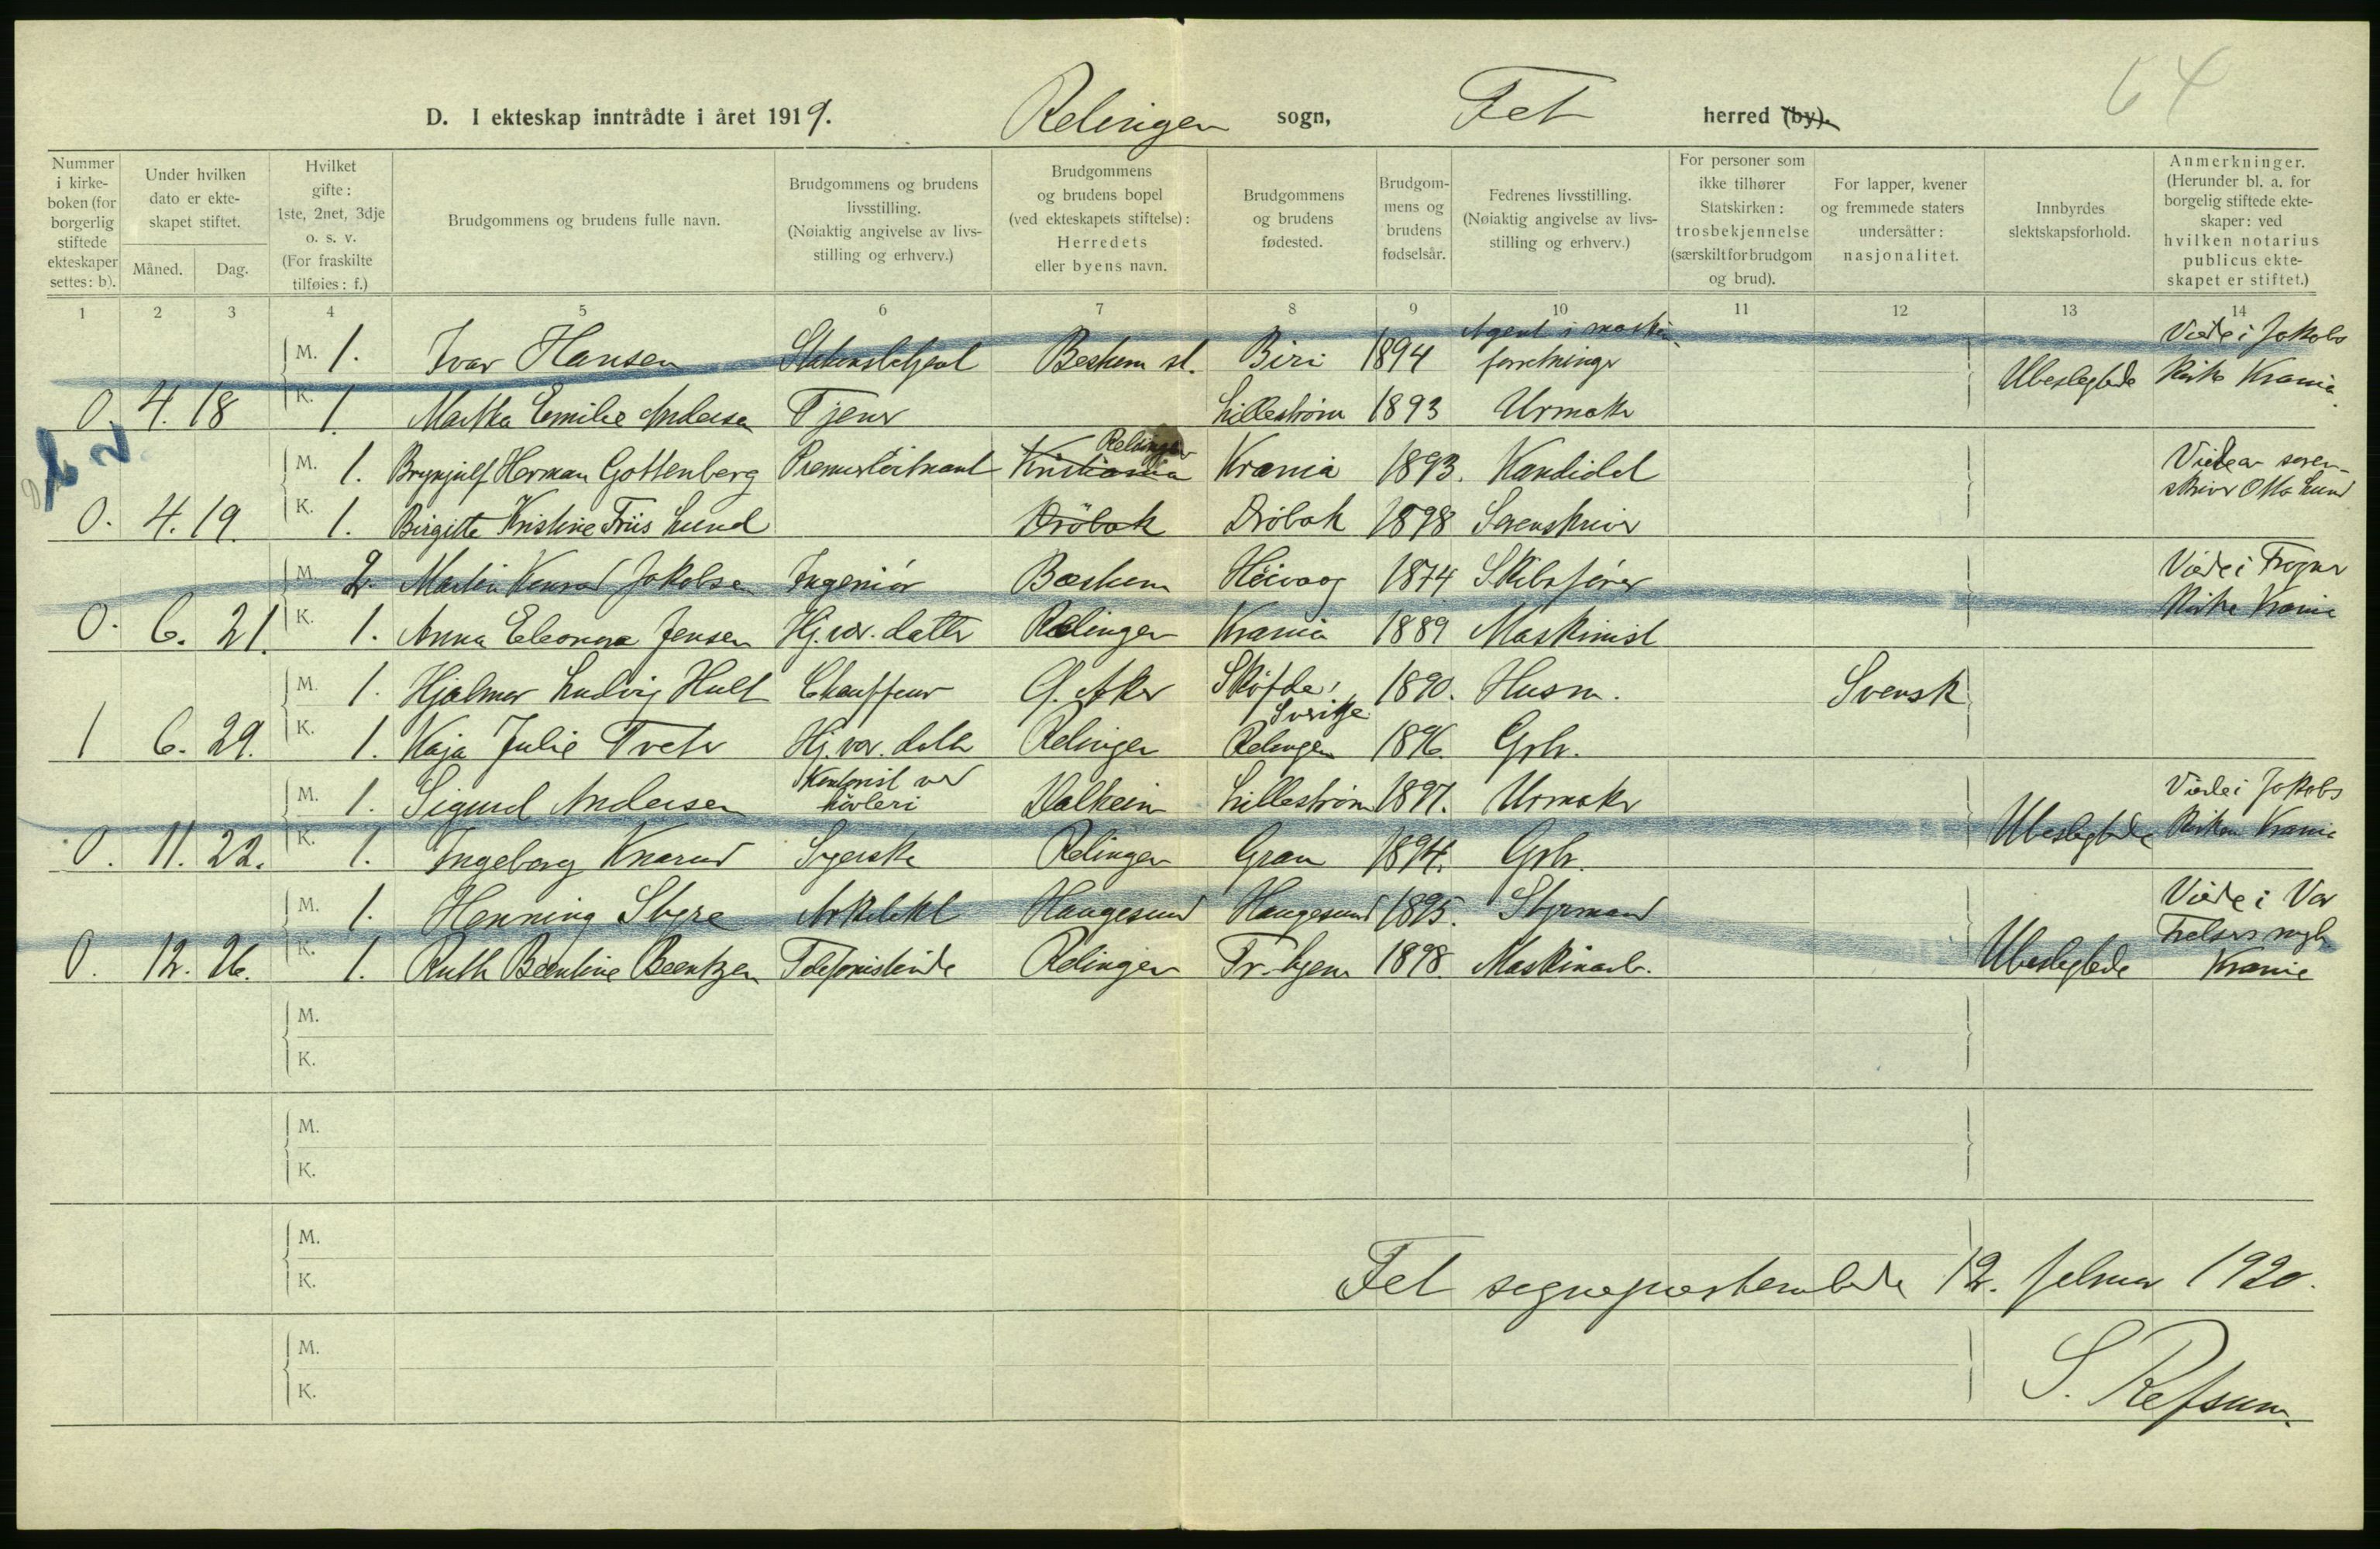 64
D. I ekteskap inntrådte i året 1919. Relingen sogn, Fet herred (by).
Nummer i kirkeboken (for borgerlig stiftede ekteskaper settes: b).
Under hvilken dato er ekteskapet stiftet.
Måned. Dag.
Hvilket gifte: 1ste, 2net, 3dje o. s. v. (For fraskilte tilføies: f.)
Brudgommens og brudens fulle navn.
Brudgommens og brudens livsstilling. (Nøiaktig angivelse av livsstilling og erhverv.)
Brudgommens og brudens bopel (ved ekteskapets stiftelse): Herredets eller byens navn.
Brudgommens og brudens fødested.
Brudgommens og brudens fødselsår.
Fedrenes livsstilling. (Nøiaktig angivelse av livsstilling og erhverv.)
For personer som ikke tilhører Statskirken: trosbekjennelse (særskilt for brudgom og brud).
For lapper, kvener og fremmede staters undersåtter: nasjonalitet.
Innbyrdes slektskapsforhold.
Anmerkninger. (Herunder bl. a. for borgelig stiftede ekteskaper: ved hvilken notarius publicus ekteskapet er stiftet.)
1 2 3 4 5 6 7 8 9 10 11 12 13 14
M. 1. Ivar Hansen Stationsbetjent Beskum st. Biri 1894 Agent i maskinforretninger Ubeslegtede Viede i Jakobs kirke Krania
0. 4. 18 K. 1. Martha Emilie Andersen Tjener Lillestrøm 1893 Urmaker
M. 1. Brynjulf Herman Gottenberg Premierløitnant Kristiania Relingen Krania 1893. Kandidat Viede av sorenskriver Otto Lund
0. 4. 19. K. 1. Birgitte Kristine Friis Lund Drøbak Drøbak 1898 Sorenskriver
M. 2. Martin Konrad Jakobsen Ingeniør Bærkum Høivaag 1874 Skibsfører Viede i Frogner kirke Krania
0. 6. 21. K. 1. Anna Eleonora Jensen Hj.vær. datter Relingen Krania 1889 Maskinist
M. 1. Hjalmar Ludvig Hult Chauffeur Ø. Aker Skøfde, Sverige 1890. Husm. Svensk
1 6. 29. K. 1. Kaja Julie Tveter Hj.vær. datter Relingen Relingen 1896. Grbr.
M. 1. Sigurd Andersen Kontorist ved høvleri Dalheim Lillestrøm 1897. Urmaker Ubeslegtede Viede i Jakobs kirken Krania
0. 11. 22. K. 1. Ingeborg Knarud Syerske Relingen Gran 1894. Grbr.
M. 1. Henning Styre Arkitekt Haugesund Haugesund 1895. Styrmand Ubeslegtede Viede i Vor Frelsers Krania
0. 12. 26. K. 1. Ruth Berntine Berntzen Telefonistinde Relingen Tr.hjem 1898. Maskinarb.
M.
K.
M.
K.
M.
K.
Fet sogneprestembede 12. februar 1920.
M.
K.
S. Refsum.